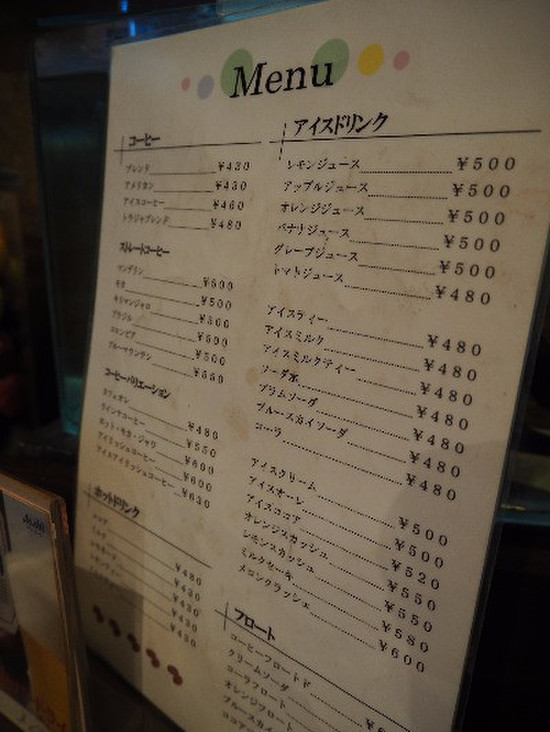 Menu
コーヒー
ブレンド ¥430
アメリカン ¥430
アイスコーヒー ¥460
トラジャブレンド ¥480
ストレートコーヒー
マンデリン ¥600
モカ ¥500
キリマンジャロ ¥500
ブラジル ¥500
コロンビア ¥500
ブルーマウンテン ¥550
コーヒーバリエーション
カフェオレ ¥480
ウインナコーヒー ¥550
ホット・モカ・ジャワ ¥600
アイリッシュコーヒー ¥600
アイスアイリッシュコーヒー ¥630
ホットドリンク
ココア ¥480
ミルク ¥430
¥430
¥430
¥450
アイスドリンク
レモンジュース ¥500
アップルジュース ¥500
オレンジジュース ¥500
バナナジュース ¥500
グレープジュース ¥500
トマトジュース ¥480
アイスティー ¥480
アイスミルク ¥480
アイスミルクティー ¥480
ソーダ水 ¥480
プラムソーダ ¥480
ブルースカイソーダ ¥480
コーラ ¥480
アイスクリーム ¥500
アイスオーレ ¥500
アイスココア ¥520
オレンジスカッシュ ¥550
レモンスカッシュ ¥550
ミルクセーキ ¥580
メロンクラッシェ ¥600
フロート
コーヒーフロート
クリームソーダ
コーラフロート
オレンジフロート
ブルースカイ
Asahi